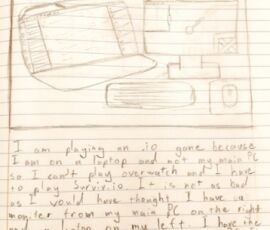 I am playing an .io game because
I am on a laptop and not my main PC
so I can't play overwatch and I have
to play Surviv.io It is not as bad
as I would have thought. I have a
moniter from my main PC on the right
and a laptop on my left. I have the